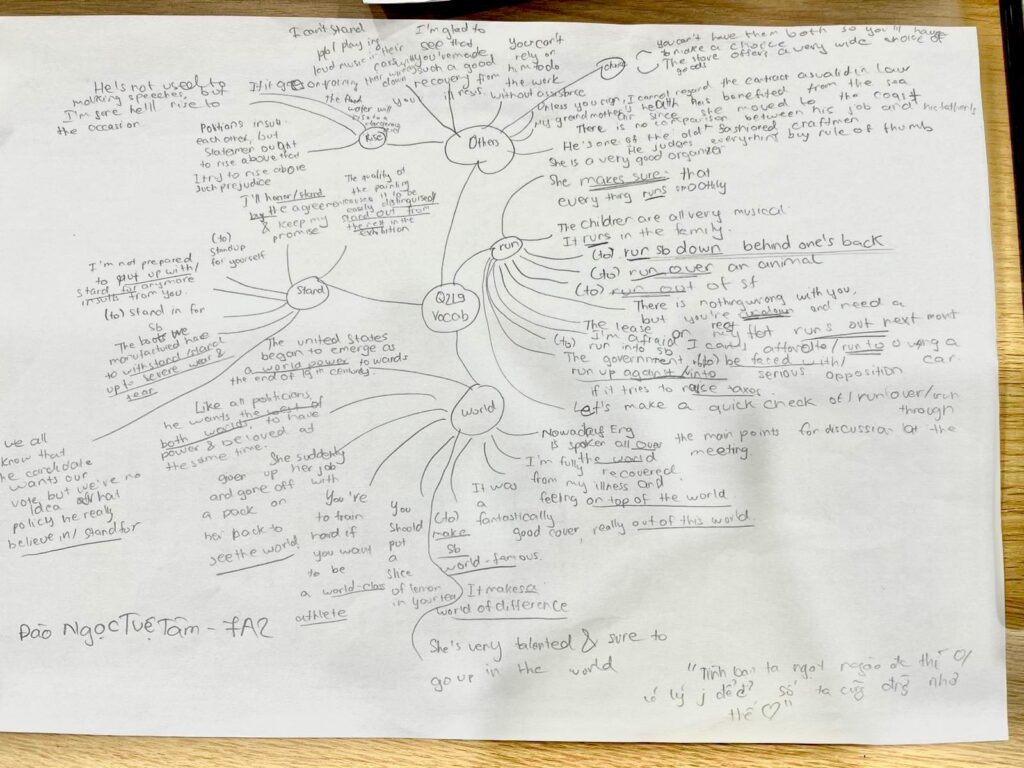 Q2L9
vocab
Others
I can't stand
ppl playing
loud music in their
I'm glad to
see that
you've made
such a good
recovery from
You can't
rely on
him to do
the work
without assistance
You can't have them both so you'll have
to make a choice
The store offers a very wide choice of
goods
Unless you sign, I cannot regard the contract as valid in law
My grandmother's health has benefited from the sea
air since she moved to the coast
There is no comparison between his job and
He's one of the old fashioned craftmen
He judges everything buy rule of thumb
She is a very good organizer
Rise
He's not used to
making speeches, but
I'm sure he'll rise to
the occasion
each other, but
Statesmen ought
to rise above that
I try to rise above
such prejudice
Stand
I'll honor/stand
by the agreement
& keep my
promise
The quality of
the painting
causes it to be
easily distinguised/
stand out from
the rest in the
exhibition
(to)
stand up
for yourself
I'm not prepared
to put up with/
stand for anymore
insults from you
(to) stand in for
sb
The boots we
manufactured have
to withstand/stand
up to severe wear &
tear
we all
know that
the candidate
wants our
vote, but we've no
idea what
policy he really
believe in/stand for
run
She makes sure that
every thing runs smoothly
The children are all very musical.
It runs in the family.
(to) run sb down behind one's back
(to) run over an animal
(to) run out of st
There is nothing wrong with you,
but you're run down and need a
rest
The lease on my flat runs out next mont
(to) run into sb
I'm afraid I can't afford to/run to using a
car.
The government, (to) be faced with/
run up against/into serious opposition
if it tries to raise taxes.
Let's make a quick check of/run over/run
through
the main points for discussion at the
meeting.
world
The united States
began to emerge as
a world power towards
the end of 19th century.
Like all politicians,
he wants the best of
both worlds, to have
power & beloved at
the same time.
She suddenly
given up her job
and gone off with
a pack on
her back to
see the world.
You're
to train
hard if
you want
to be
a world-class
athlete
You
should
put
a
slice
of lemon
in your tea
It makes a
world of difference
(to)
make
sb
world-famous.
It was
a
fantastically
good cover, really out of this world
I'm fully recovered
from my illness and
feeling on top of the world
Nowadays Eng
is spoken all over
the world
She's very talented & sure to
go up in the world
Đào Ngọc Tuệ Tâm - 7A2
"Tình bạn ta ngọt ngào
thế ♡"